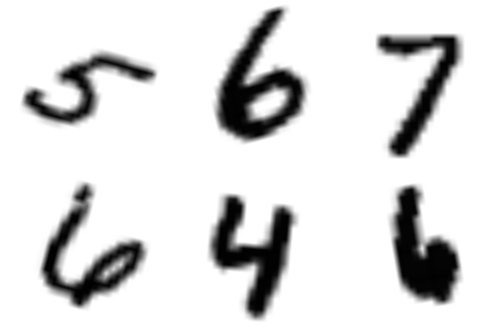 5 6 7
6 4 6